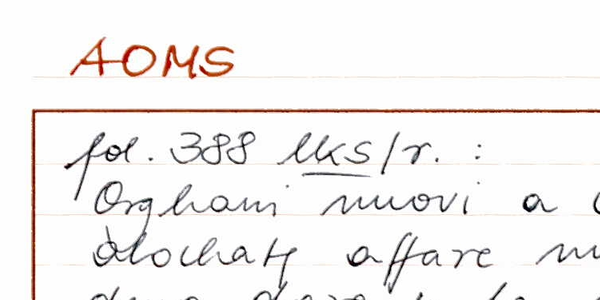 AOMS
fol. 388 lks/r. :
Orghani nuovi a
alochatj affare